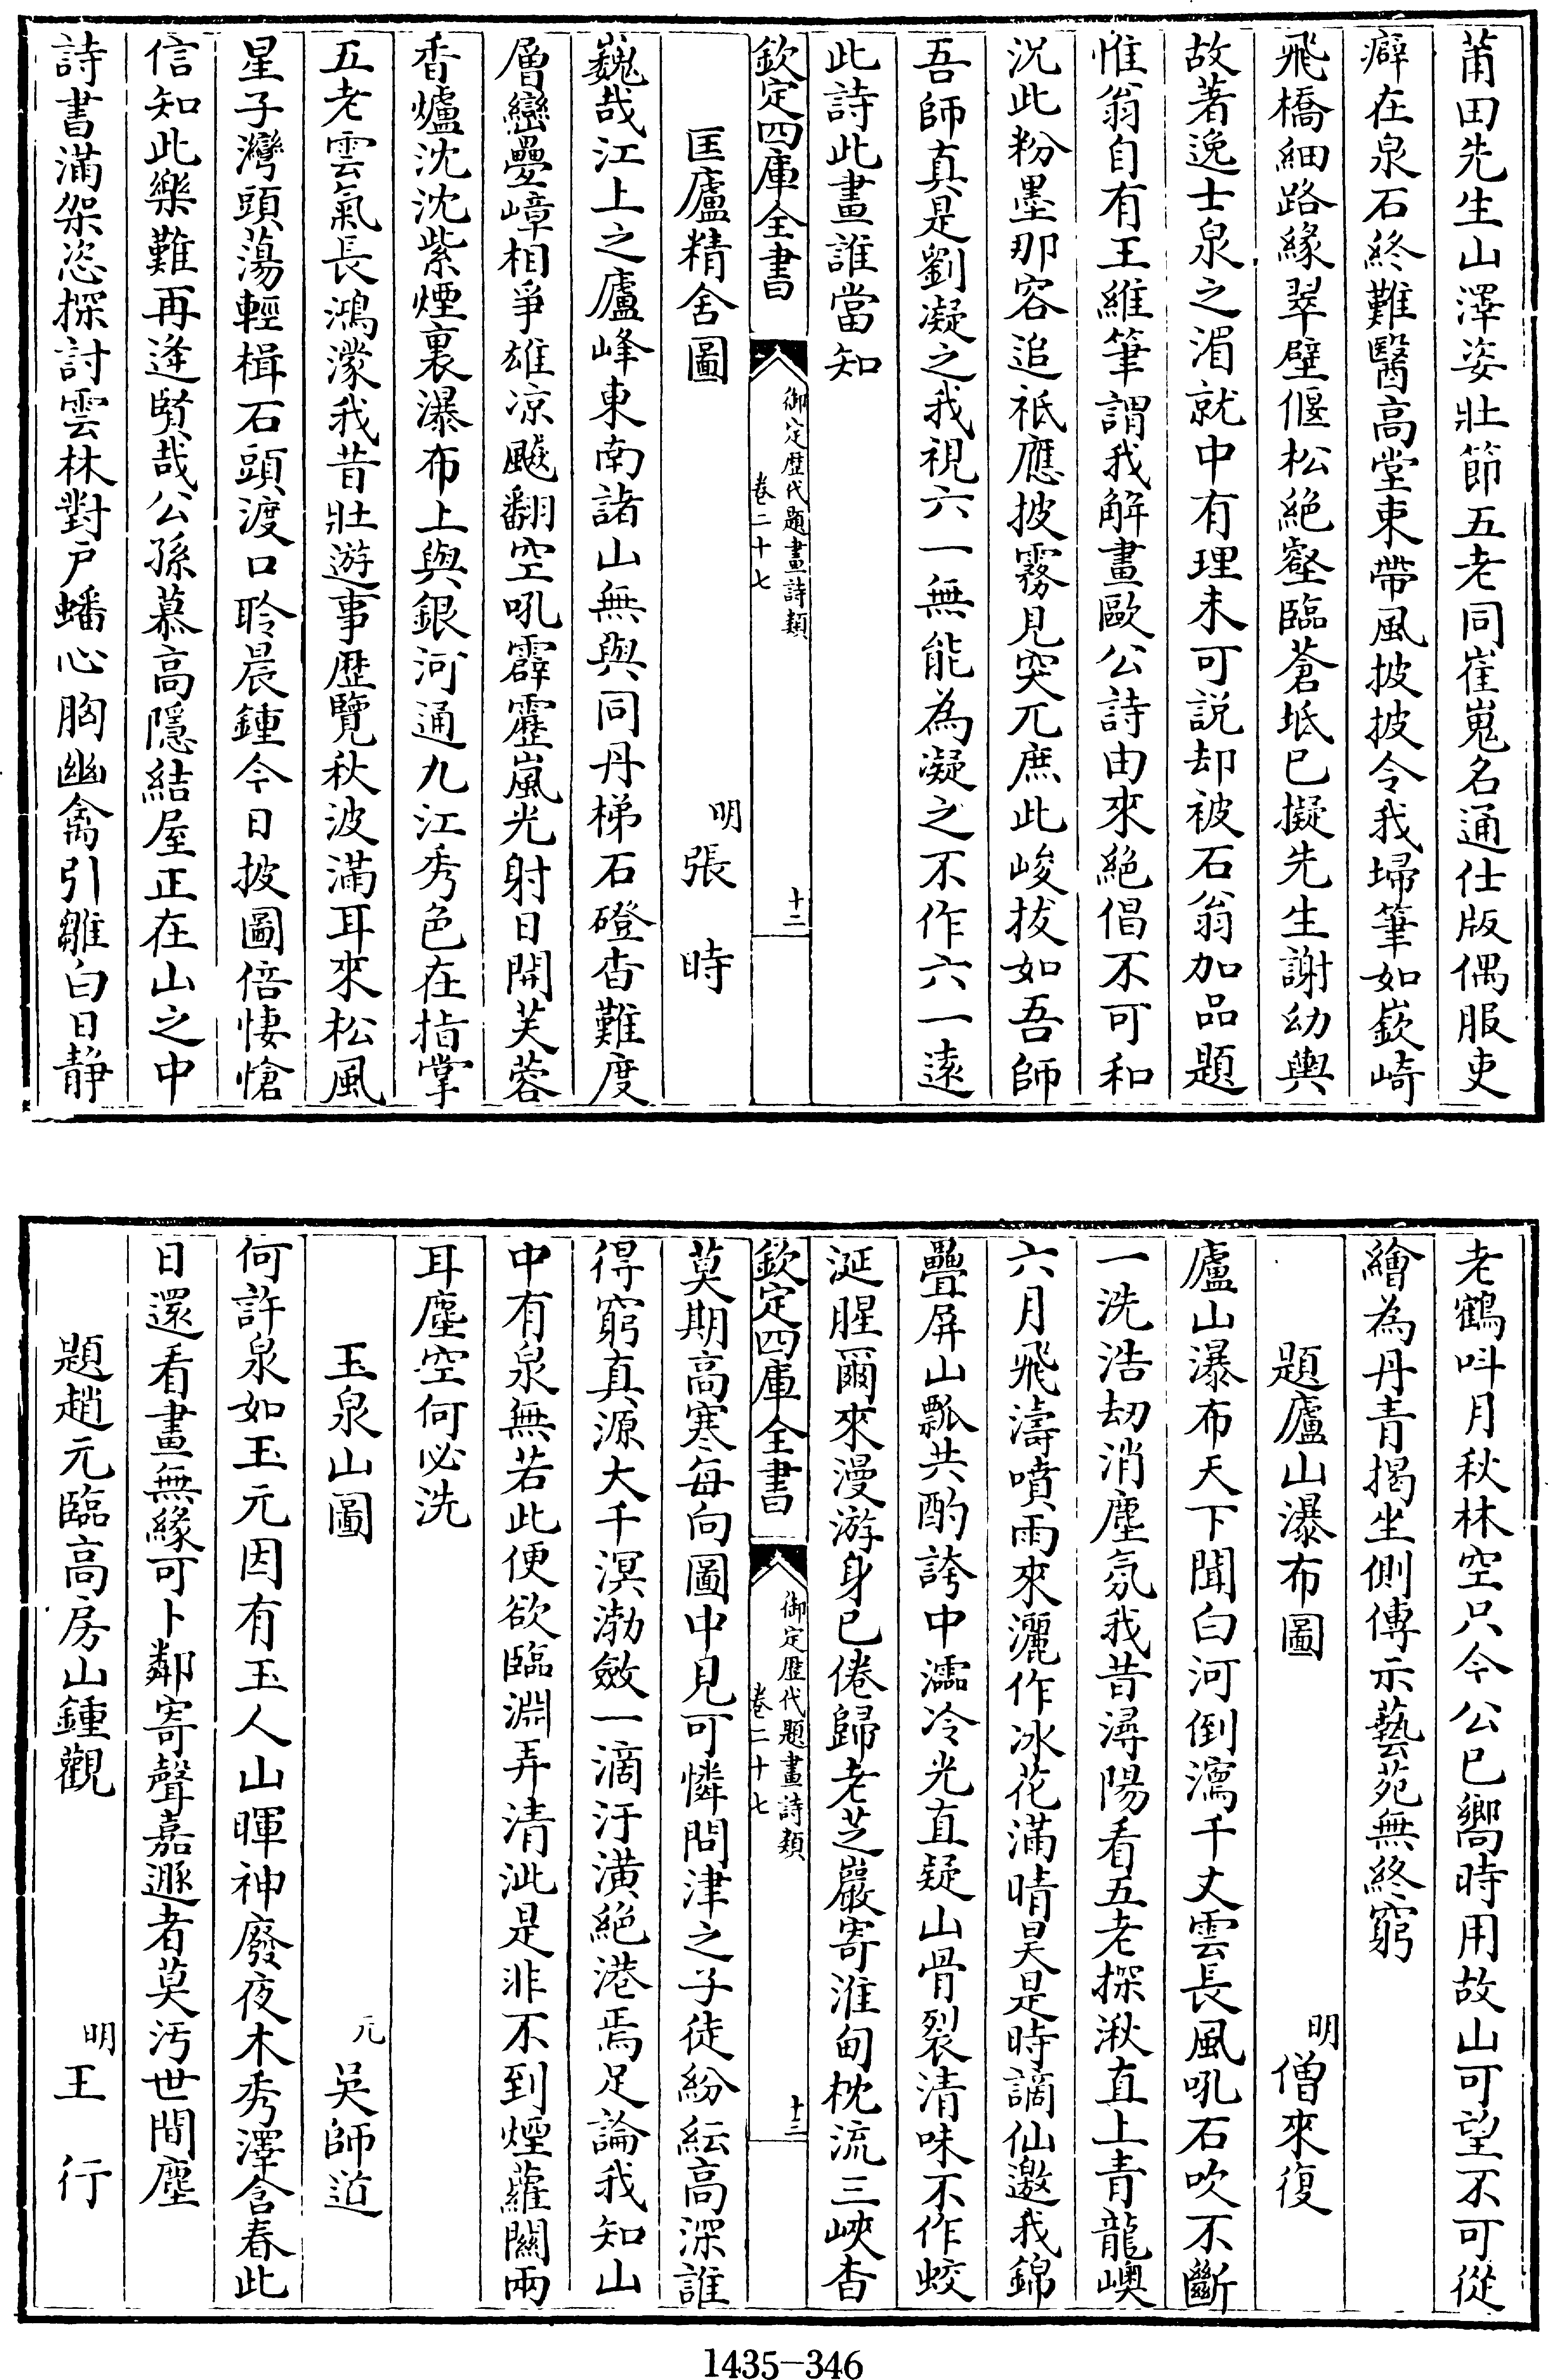 莆田先生山澤姿壯節五老同崔嵬名通仕版偶服吏
癖在泉石終難醫高堂束帶風披披令我埽筆如嶔崎
飛橋細路緣翠壁偃松絶壑臨蒼坻已擬先生謝幼輿
故著逸士泉之湄就中有理未可説却被石翁加品題
惟翁自有王維筆謂我解畫歐公詩由來絶倡不可和
況此粉墨那容追祗應披霧見突兀庶此峻拔如吾師
吾師真是劉凝之我視六一無能為凝之不作六一遠
此詩此畫誰當知
欽定四庫全書
御定歷代題畫詩類
卷二十七
十二
匡廬精舍圖
明張時
巍哉江上之廬峰東南諸山無與同丹梯石磴杳難度
層巒疊嶂相爭雄凉飈翻空吼霹靂嵐光射日開芙蓉
香爐沈沈紫煙裏瀑布上與銀河通九江秀色在指掌
五老雲氣長鴻濛我昔壯遊事歷覽秋波滿耳來松風
星子灣頭蕩輕楫石頭渡口聆晨鍾今日披圖倍悽愴
信知此樂難再逢賢哉公孫慕高隱結屋正在山之中
詩書滿架恣探討雲林對戶蟠心胸幽禽引雛白日静
老鶴呌月秋林空只今公已嚮時用故山可望不可從
繪為丹青揭坐側傳示藝苑無終窮
題廬山瀑布圖
明僧來復
廬山瀑布天下聞白河倒瀉千丈雲長風吼石吹不斷
一洗浩劫消塵氛我昔潯陽看五老探湫直上青龍嶼
六月飛濤噴雨來灑作冰花滿晴昊是時謫仙邀我錦
疊屏山瓢共酌誇中濡冷光直疑山骨裂清味不作蛟
涎腥爾來漫游身已倦歸老芝巖寄淮甸枕流三峽杳
欽定四庫全書
御定歷代題畫詩類
卷二十七
十三
莫期高寒每向圖中見可憐問津之子徒紛紜高深誰
得窮真源大千溟渤斂一滴汙潢絶港焉足論我知山
中有泉無若此便欲臨淵弄清泚是非不到煙蘿關兩
耳塵空何必洗
玉泉山圖
元吳師道
何許泉如玉元因有玉人山暉神廢夜木秀澤含春此
日還看畫無緣可卜鄰寄聲嘉遯者莫汚世間塵
題趙元臨高房山鍾觀
明王行
1435-346